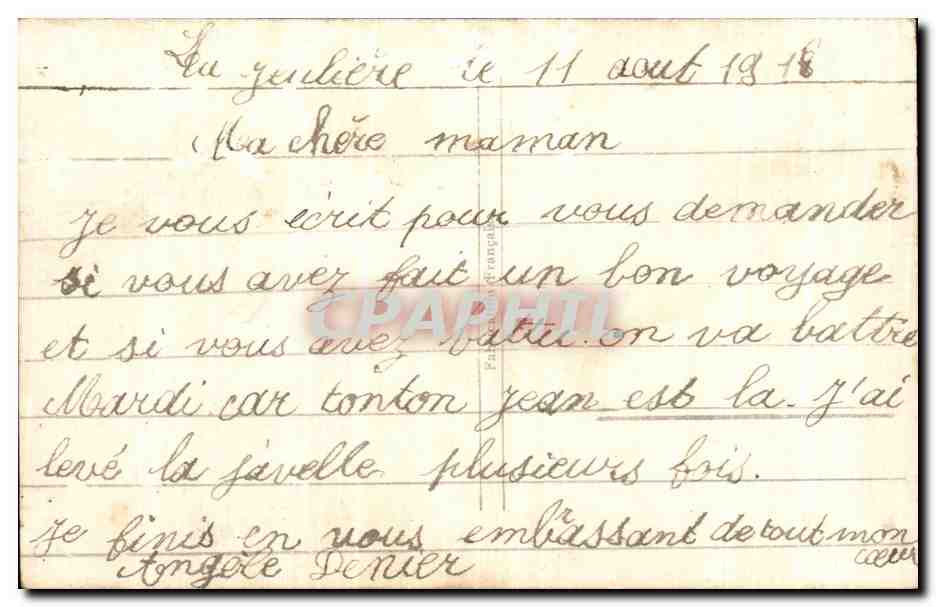 La Jeulière le 11 aout 1918
Ma chère maman
Je vous écrit pour vous demander
si vous avez fait un bon voyage
et si vous avez battu. on va battre
Mardi car tonton jean est la. J'ai
levé la javelle plusieurs fois.
Je finis en vous embrassant de tout mon
coeur
Angèle Denier
CPAPHIL
Français